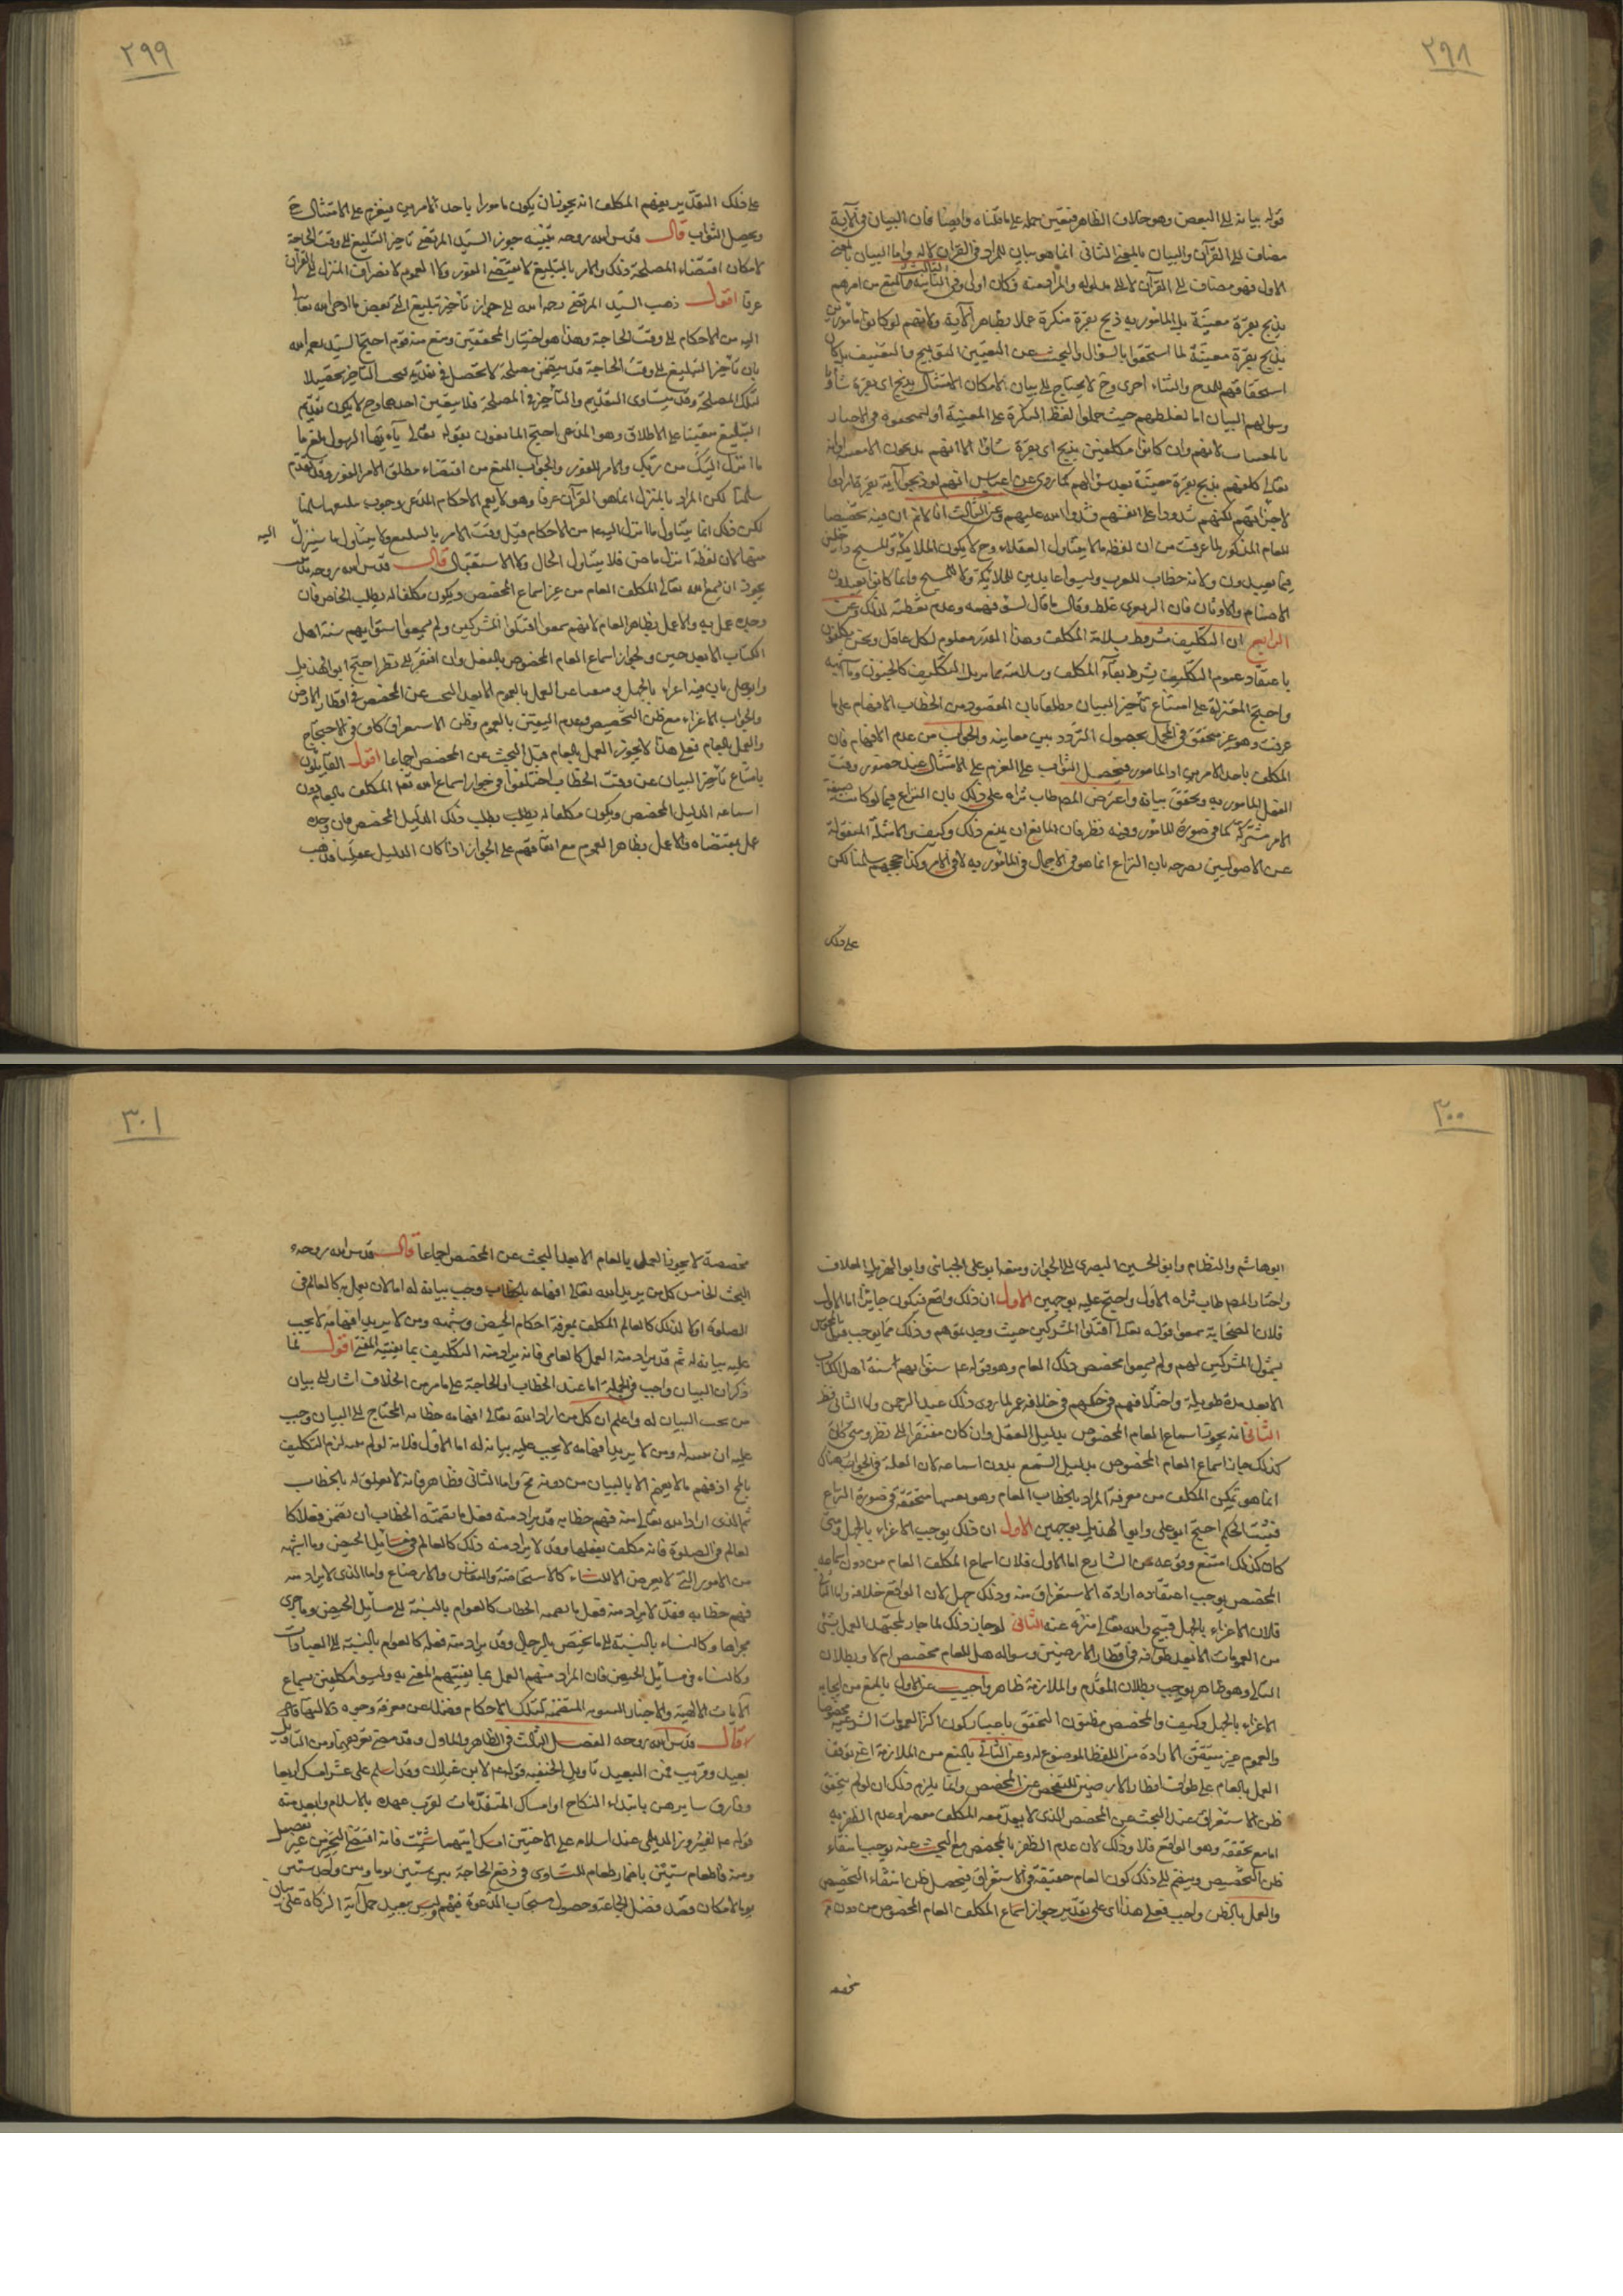 ٢٩٨
قوله بيانه الى البعض وهو خلاف الظاهر فتعين حمله على ما قلناه وايضا فان البيان في الآية
مضاف الى القرآن والبيان بالمعنى الثانى انما هو بيان للمراد فى القرآن لا له واما البيان بالمعنى
الاول فهو مضاف الى القرآن لا الى مدلوله والمراد منه فكان اولى وفى الثانية فالمنع من امرهم
بذبح بقرة معينة بل المأمور به ذبح بقرة منكرة عملا بظاهر الآية ولانهم لو كانوا مأمورين
بذبح بقرة معينة لما استحقوا بالسؤال والبحث عن التعيين التقبيح والتعنيف بل كان
استحقاقهم للمدح والثناء احرى وح لا يحتاج الى بيان لامكان الامتثال بذبح اى بقرة شاؤا
وسوالهم البيان اما لغلطهم حيث حملوا لفظ النكرة على المعينة او
لانهم وان كانوا مكلفين بذبح اى بقرة شاؤا الا انهم
تعالى كلفهم بذبح بقرة معينة بعد سؤالهم كما روى عن ابن عباس انهم لو ذبحوا اية بقرة ارادوا
لاجزأتهم لكنهم شددوا على انفسهم فشدد الله عليهم وعن الثالث انا لا نم ان فيه تخصيصا
للعام المذكور لما عرفت من ان لفظه ما لا يتناول العقلاء وح لا يكون الملائكة والمسيح داخلين
فيما يعبدون ولانه خطاب للعرب وليسوا عابدين للملائكة ولا للمسيح وانما كانوا يعبدون
الاصنام والاوثان فان الزبعرى غلط وقال ما قال لسوء فهمه وعدم تفطنه لذلك وعن
الرابع ان التكليف مشروط بسلامة المكلف وهذا القدر معلوم لكل عاقل ونحن مكلفون
باعتقاد عموم التكليف بشرط بقاء المكلف وسلامته مما يزيل التكليف كالجنون وما اشبهه
واحتج المعتزلة على امتناع تأخير البيان مطلقا بان المقصود من الخطاب الافهام على ما
عرفت وهو غير متحقق فى المجمل لحصول التردد بين معانيه والجواب من عدم الافهام فان
المكلف باحد الامرين او المأمور فيحصل الثواب على العزم على الامتثال عند حضور وقت
الفعل المأمور به وتحقق بيانه واعترض المص طاب ثراه على ذلك بان النزاع فيما لو كانت صيغة
الامر مشتركة كما فى صورة المأمور وفيه نظر فان المانع ان يمنع ذلك وكيف والامثلة المنقولة
عن الاصوليين مصرحه بان النزاع انما هو فى الاجمال فى المأمور به لا فى الامر وكذا حججهم سلمنا لكن
على ذلك
٢٩٩
على ذلك التقدير يفهم المكلف انه يجوز ان يكون مامورا باحد الامرين فيعزم على الامتثال ح
ويحصل الثواب قال قدس الله روحه تنبيه جوز السيد المرتضى تاخير التبليغ الى وقت الحاجة
لامكان اقتضاء المصلحة ذلك والامر بالتبليغ لا يقتضى الفور ولا العموم لانصراف المنزل الى القرآن
عرفا اقول ذهب السيد المرتضى رحمه الله الى جواز تأخير تبليغ النبى بعض ما اوحى الله تعالى
اليه من الاحكام الى وقت الحاجة وهذا هو اختيار المحققين ومنع منه قوم احتج السيد رحمه الله
بان تأخير التبليغ الى وقت الحاجة قد يتضمن مصلحة لا تحصل فى تقديمه فيجب التاخير تحصيلا
لتلك المصلحة وقد يتساوى التقديم والتأخير فى المصلحة فلا يتعين احدهما وح لا يكون تقديم
التبليغ متعينا على الاطلاق وهو المدعى احتج المانعون بقوله تعالى يآ ايها الرسول بلغ ما
ما انزل اليك من ربك والامر للفور والجواب المنع من اقتضاء مطلق الامر الفور وقد تقدم
سلمنا لكن المراد بالمنزل انما هو القرآن عرفا وهو لا يعم الاحكام المدعى وجوب تبليغها سلمنا
لكن ذلك انما يتناول ما انزل اليه من الاحكام قبل وقت الامر بالتبليغ ولا يتناول ما سينزل اليه
منها لان لفظة انزل ماض فلا يتناول الحال ولا الاستقبال قال قدس الله روحه
يجوز ان يسمع الله تعالى المكلف العام من غير اسماع المخصص ويكون مكلفا له بطلب الخاص فان
وجده عمل به والا عمل بظاهر العام لانهم سمعوا اقتلوا المشركين ولم يسمعوا سنوا بهم سنة اهل
الكتاب الا بعد حين ولجواز اسماع العام المخصوص بالعقل وان افتقر الى نظر احتج ابو الهذيل
وابو على بان فيه اغراء بالجهل و عن العمل بالعموم الا بعد البحث عن المخصص فى اقطار الارض
والجواب لا اغراء مع ظن التخصيص وعدم اليقين بالعموم وظن الاستغراق كاف فى الاحتجاج
والعمل بالعام فعلى هذا لا يجوز العمل بالعام قبل البحث عن المخصص اجماعا اقول القائلون
بامتناع تأخير البيان عن وقت الخطاب اختلفوا فى جواز اسماع الله تعالى المكلف بالعام دون
اسماعه الدليل المخصص ويكون مكلفا له بطلب ذلك الدليل المخصص فان وجده
عمل بمقتضاه والا عمل بظاهر العموم مع اتفاقهم على الجواز اذا كان الدليل عقليا فذهب
٣٠٠
ابو هاشم والنظام وابو الحسين البصرى الى الجواز ومنعه ابو على الجبائى وابو الهذيل العلاف
واختار المص طاب ثراه الاول واحتج عليه بوجهين الاول ان ذلك واقع فيكون جايزا اما الاول
فلان الصحابة سمعوا قوله تعالى اقتلوا المشركين حيث وجدتموهم وذلك مما يوجب
بشمول المشركين لهم ولم يسمعوا مخصص ذلك العام وهو قوله عم سنوا بهم سنة اهل الكتاب
الا بعد مدة طويلة واختلافهم فى حكمهم فى خلافة عمر لما روى ذلك عبد الرحمن واما الثانى فظ
الثانى انه يجوز اسماع العام المخصوص بدليل العقل وان كان مفتقرا الى نظر ومتى كان
كذلك جاز اسماع العام المخصوص بدليل السمع بدون اسماعه لان العلة فى الجواز هناك
انما هو تمكين المكلف من معرفة المراد بالخطاب العام وهو بعينها متحققة فى صورة النزاع
فيثبت الحكم احتج ابو على وابو الهذيل بوجهين الاول ان ذلك يوجب الاغراء بالجهل ومتى
كان كذلك امتنع وقوعه من الشارع اما الاول فلان اسماع المكلف العام من دون سماعه
المخصص يوجب اعتقاده ارادة الاستغراق منه وذلك جهل لان الواقع خلافه واما الثانى
فلان الاغراء بالجهل قبيح والله تعالى منزه عنه الثانى لو جاز ذلك لما جاز للمجتهد العمل بشئ
من العمومات الا بعد طوافه فى اقطار الارضين وسواله هل للعام مخصص ام لا وبطلان
التالى وهو ظاهر يوجب بطلان المقدم والملازمة ظاهرة واجيب عن الاول بالمنع من ايجابه
الاغراء بالجهل وكيف والمخصص مظنون التحقق باعتبار كون اكثر العمومات الشرعية مخصوصا
والعموم غير متيقن الارادة من اللفظ الموضوع له وعن الثانى بالمنع من الملازمة اعنى توقف
العمل بالعام على طواف اقطار الارضين للتفحص عن المخصص وانما يلزم ذلك ان لو لم يتحقق
ظن الاستغراق عند البحث عن المخصص الذى لا يعد معه المكلف مقصرا وعدم الظفر به
اما مع تحققه وهو الواقع فلا وذلك لان عدم الظفر بالمخصص مع البحث عنه يوجب انتفاء
ظن التخصيص وينضم الى ذلك كون العام حقيقة فى الاستغراق فيحصل ظن انتفاء التخصيص
والعمل بالظن واجب فعلى هذا اى على تقدير جواز اسماع المكلف العام المخصوص من دون
٣٠١
مخصصة لا يجوز العمل بالعام الا بعد البحث عن المخصص اجماعا قال قدس الله روحه
البحث الخامس كل من يريد الله تعالى افهامه بالخطاب وجب بيانه له اما لان يعمل به كالعالم فى
الصلوة او لا لذلك كالعالم المكلف بمعرفة احكام الحيض وشبهه ومن لا يريد افهامه لا يجب
عليه بيانه له ثم قد يراد منه العمل كالعامى فانه يراد منه التكليف بما يفتيه المفتى اقول لما
ذكر ان البيان واجب فى الجملة اما عند الخطاب او الحاجة على ما مر من الخلاف اشار الى بيان
من يجب البيان له واعلم ان كل من اراد الله تعالى افهامه خطابه المحتاج الى البيان وجب
عليه ان يبينه له ومن لا يريد افهامه لا يجب عليه بيانه له اما الاول فلانه لو لم يبينه لزم التكليف
بالمح اذ فهم ما لا يفهم الا بالبيان من دونه مح واما الثانى فظاهر فانه لا تعلق له بالخطاب
ثم الذى اراد الله تعالى منه فهم خطابه قد يراد منه فعل ما تضمنه الخطاب ان تضمن فعلا كا
لعالم فى الصلوة فانه مكلف بفعلها وقد لا يراد منه ذلك كالعالم فى مسائل الحيض وما اشبهه
من الامور التى لا يعرض الا للنساء كالاستحاضة والنفاس والارضاع واما الذى لا يراد منه
فهم خطابه فقد لا يراد منه فعل ما تضمنه الخطاب كالعوام بالنسبة الى مسائل الحيض وما جرى
مجراها وكالنساء بالنسبة الى ما يختص بالرجال وقد يراد منه فعله كالعوام بالنسبة الى العبادات
وكالنساء فى مسائل الحيض فان المراد منهم العمل بما يفتيهم المفتى به وليسوا مكلفين بسماع
الآيات الالهية والاخبار النبوية المتضمنة لتلك الاحكام فضلا عن معرفة وجوه دلالتها
قال قدس الله روحه الفصل الثالث فى الظاهر والماول وقد مضى تعريفهما ومن التأويل
بعيد وقريب فمن البعيد تاويل الحنفيه قوله عم لابن غيلان وقد اسلم على عشر امسك اربعا
وفارق سايرهن بابتداء النكاح او امساك المتقدمات لقرب عهده بالاسلام وابعد منه
قوله عم لفيروز الديلمى عند اسلامه على الاختين امسك ايتهما شئت فانه اقتضى التخيير من غير تفصيل
ومنه فاطعام ستين باضمار طعام للتساوى فى دفع الحاجة بين ستين يوما وبين واحد ستين
يوما لامكان قصد فضل الجماعة وحصول مستجاب الدعوة فيهم وليس ببعيد حمل آية الزكاة على بيان